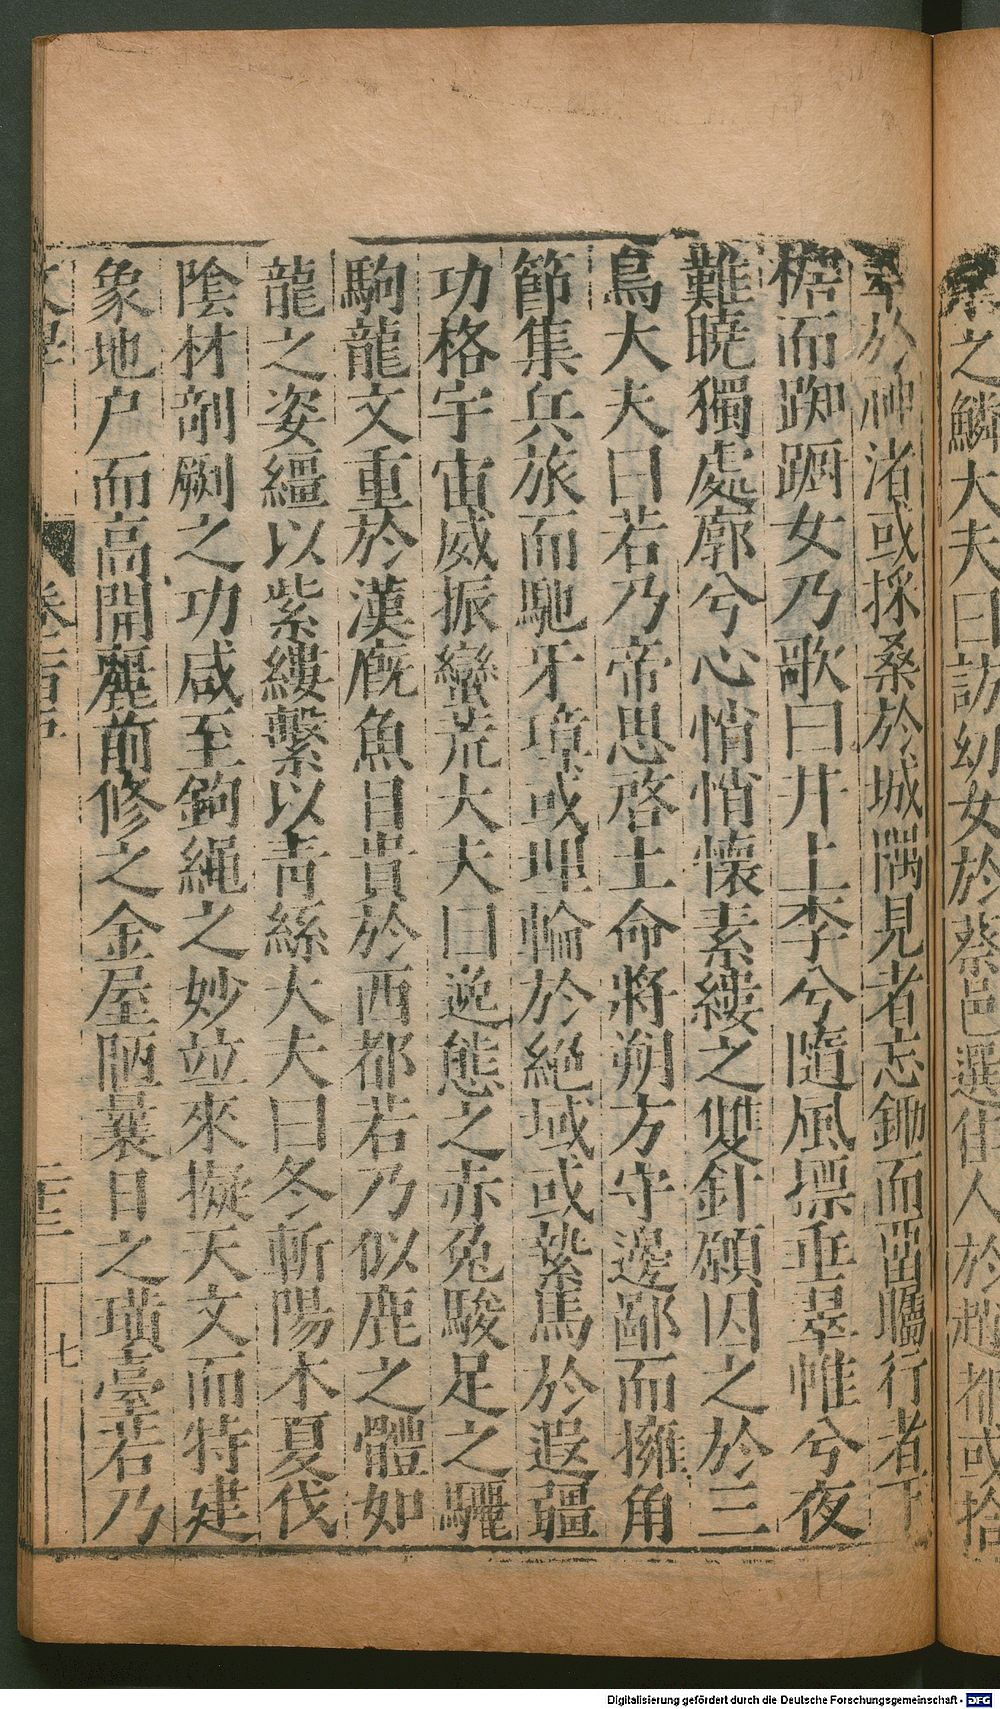 之鱗大夫曰訪幼女於蔡邑選佳人於趙都或拾
於神渚或採桑於城隅見者忘鋤而䓤臅行者下
而踟躕女乃歌曰井上李兮隨風摽垂翠帷兮夜
難曉獨處廓兮心悄悄懷素縷之雙針願因之於三
鳥大夫曰若乃帝思啓土命將朔方守邊鄙而擁角
節集兵旅而馳牙璋或埋輪於絶域或縶馬於遐疆
功格宇宙威振蠻荒大夫曰逸態之赤兔駿足之驪
駒龍文重於漢廐魚目貴於西都若乃似鹿之體如
龍之姿繮以紫縷繫以青絲大夫曰冬斬陽木夏伐
陰材剞劂之功咸至鉤繩之妙竝來擬天文而特建
象地户而高開麗前修之金屋陋曩日之璜臺若乃
卷
七
Digitalisierung gefördert durch die Deutsche Forschungsgemeinschaft - DFG